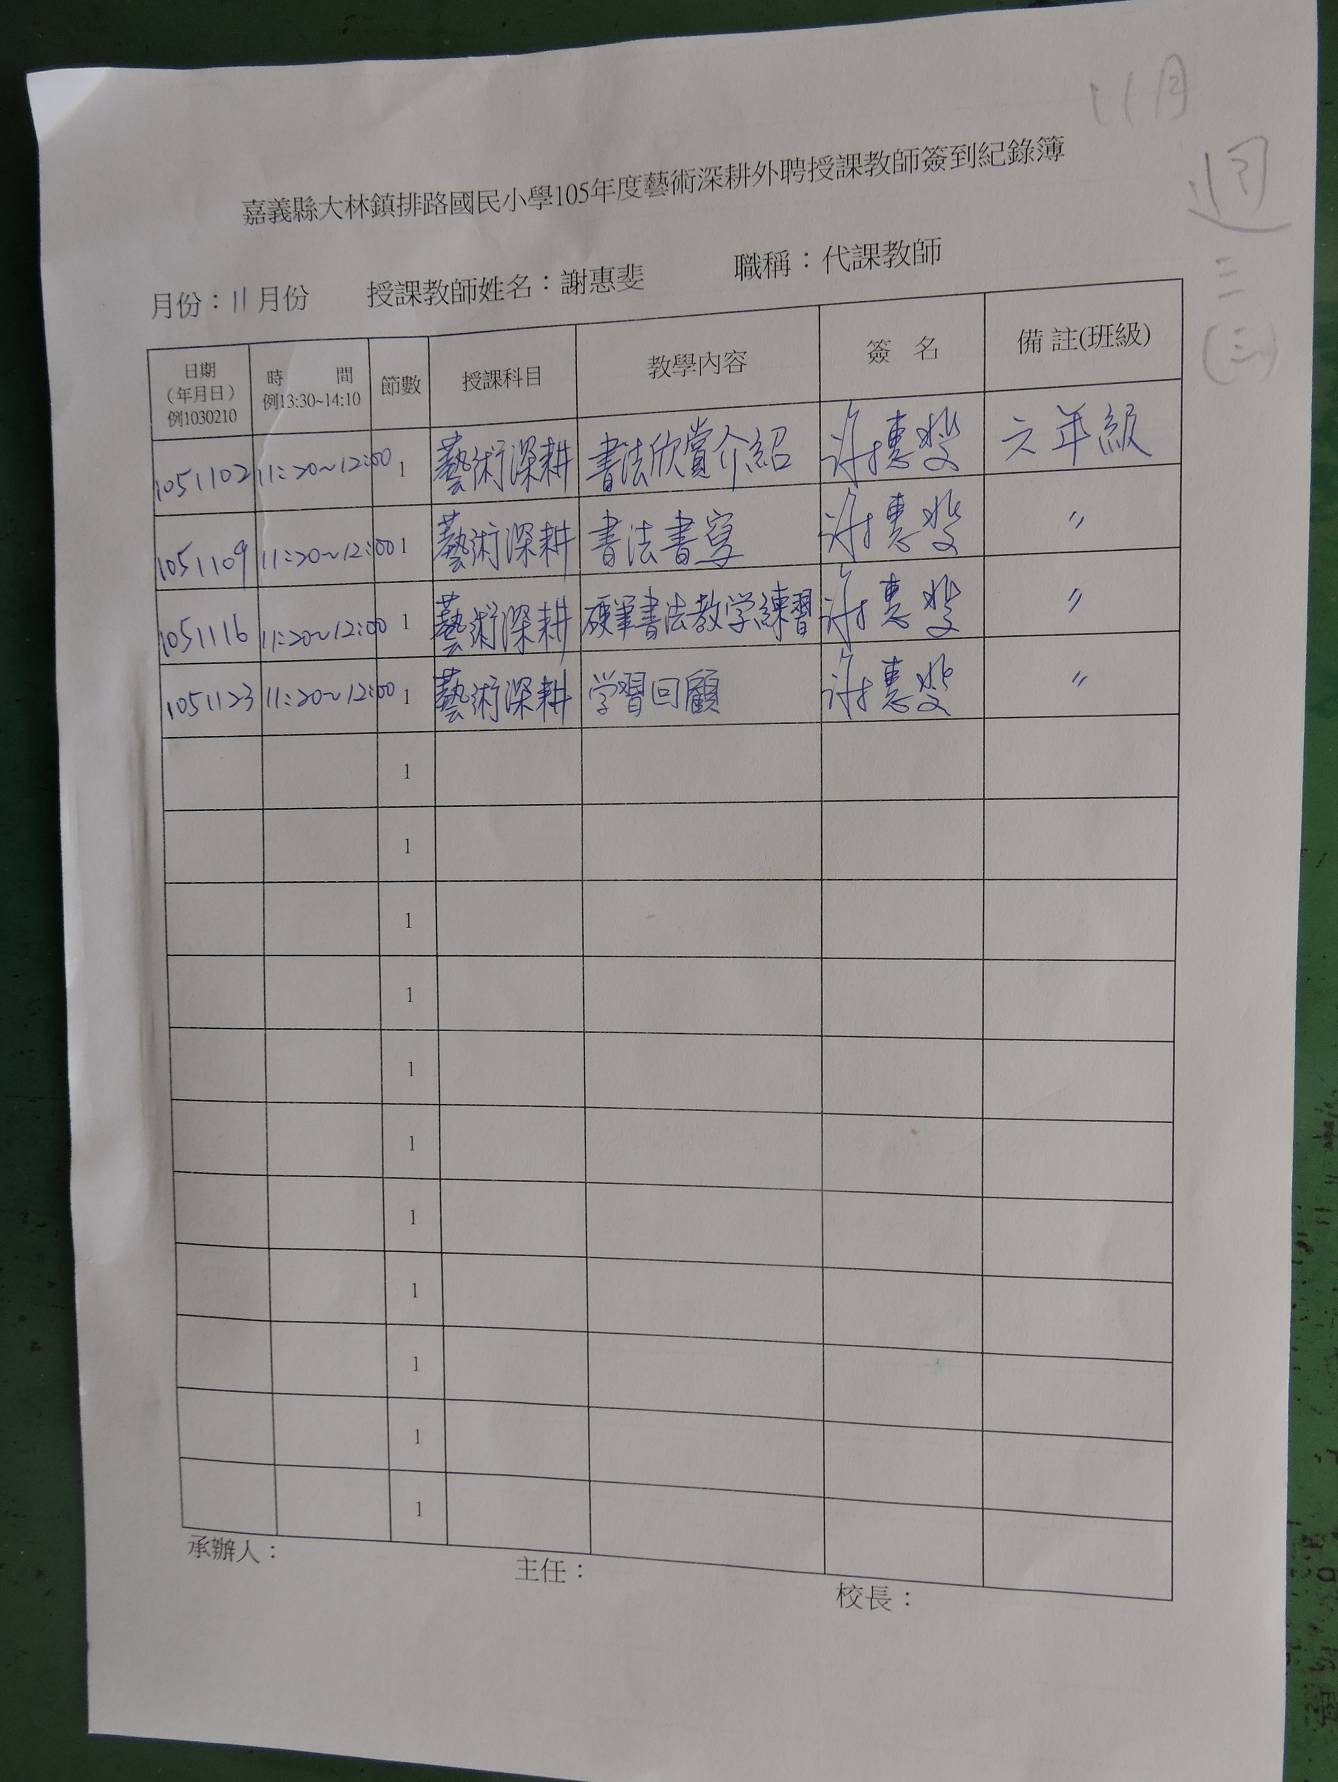 11月
週
三
(三)
嘉義縣大林鎮排路國民小學105年度藝術深耕外聘授課教師簽到紀錄簿
月份：11月份 授課教師姓名：謝惠斐 職稱：代課教師
日期（年月日）例1030210 時 間 例13:30~14:10 節數 授課科目 教學內容 簽 名 備 註(班級)
1051102 11:20~12:00 1 藝術深耕 書法欣賞介紹 謝惠斐 六年級
1051109 11:20~12:00 1 藝術深耕 書法書寫 謝惠斐 〃
1051116 11:20~12:00 1 藝術深耕 硬筆書法教学練習 謝惠斐 〃
1051123 11:20~12:00 1 藝術深耕 学習回顧 謝惠斐 〃
1
1
1
1
1
1
1
1
1
1
1
承辦人： 主任： 校長：